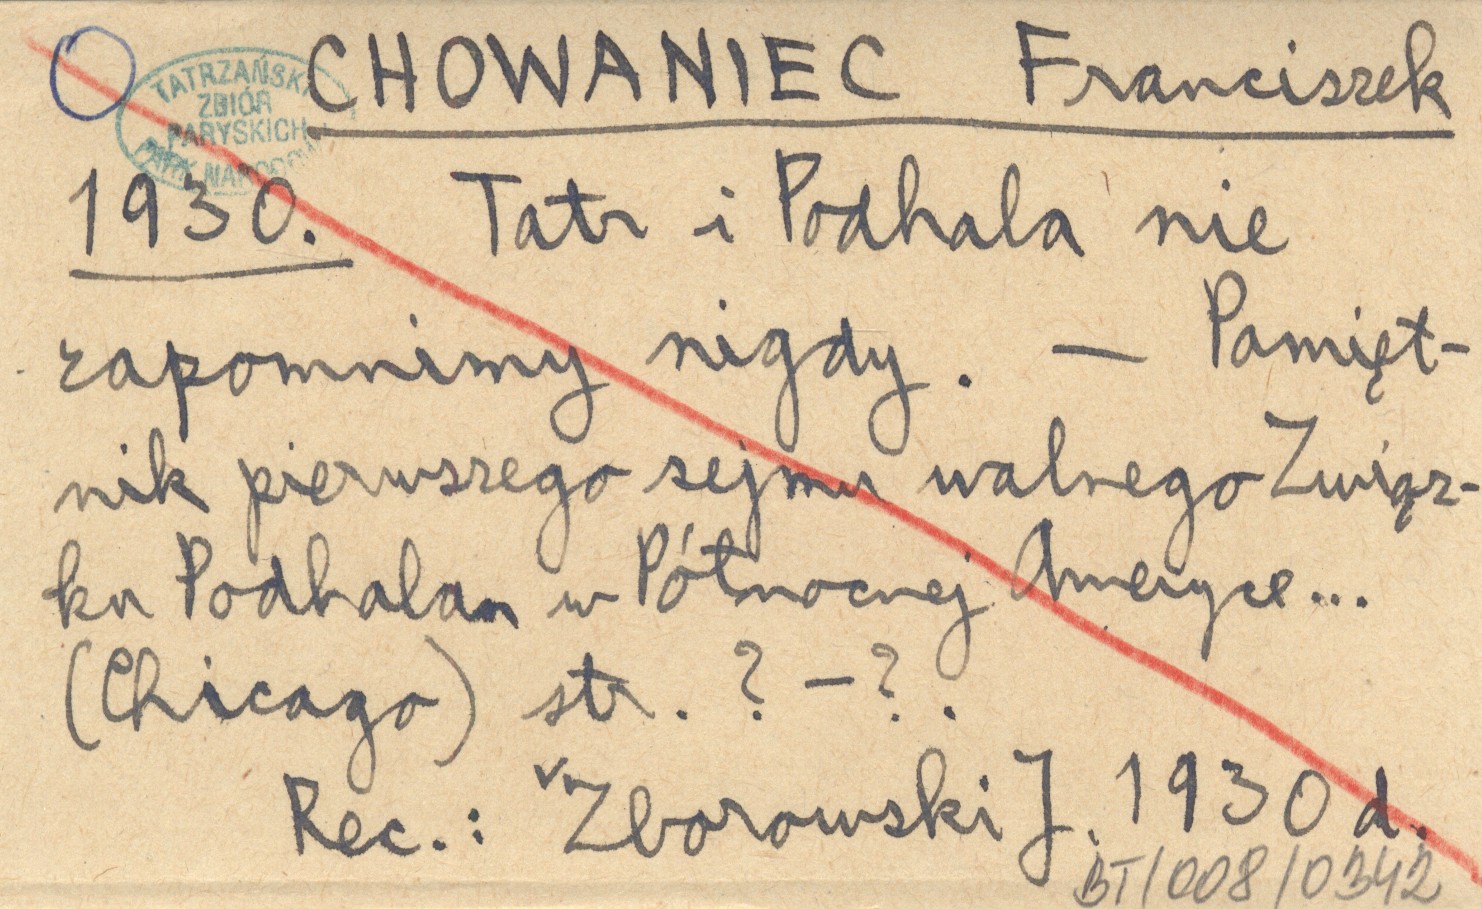 CHOWANIEC Franciszek
TATRZAŃSKI
ZBIÓR
PARYSKICH
PARK NARODOWY
1930. Tatr i Podhala nie
zapomnimy nigdy. — Pamięt-
nik pierwszego sejmu walnego Związ-
ku Podhalan w Północnej Ameryce...
(Chicago) str. ? – ? .
Rec.: Zborowski J. 1930 d.
BT/008/0342